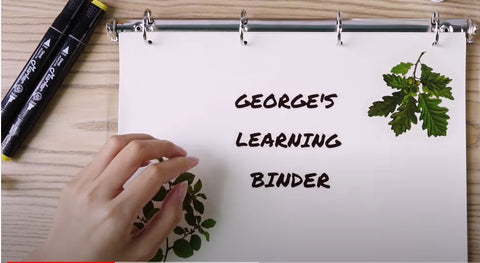 GEORGE'S
LEARNING
BINDER